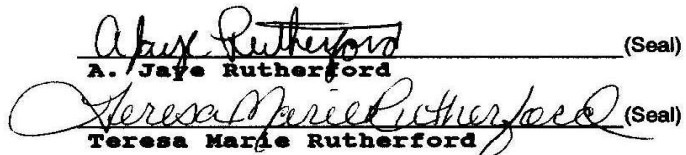 A Jaye Rutherford (Seal)
A. Jaye Rutherford
Teresa Marie Rutherford (Seal)
Teresa Marie Rutherford